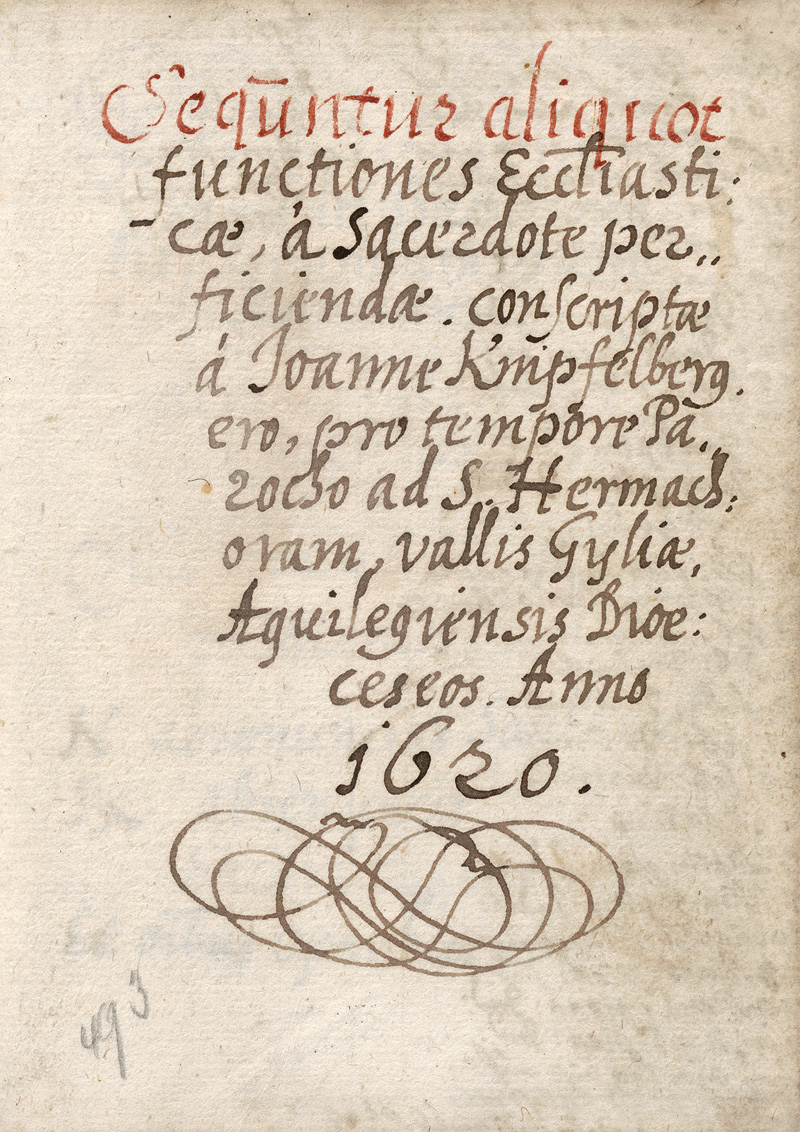 Seqūntur aliquot
functiones Eccl̄iasti:
cæ, á Sacerdote per,,
ficiendæ. conscriptæ
á Joanne Knipfelberg.
ero, pro tempore Pa,,
rocho ad S. Hermach:
oram, vallis Gyliæ,
Aquilegiensis Dioe:
ceseos. Anno
1620.
493